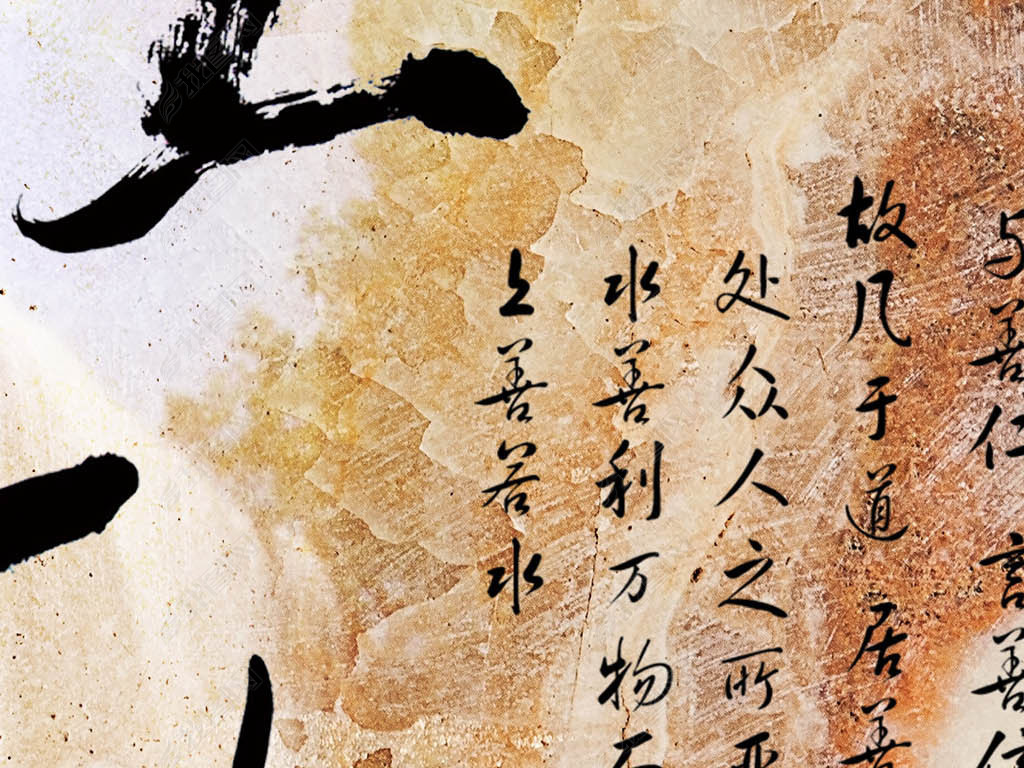 上善若水
水善利万物
处众人之所
故几于道 居善
与善仁 言善